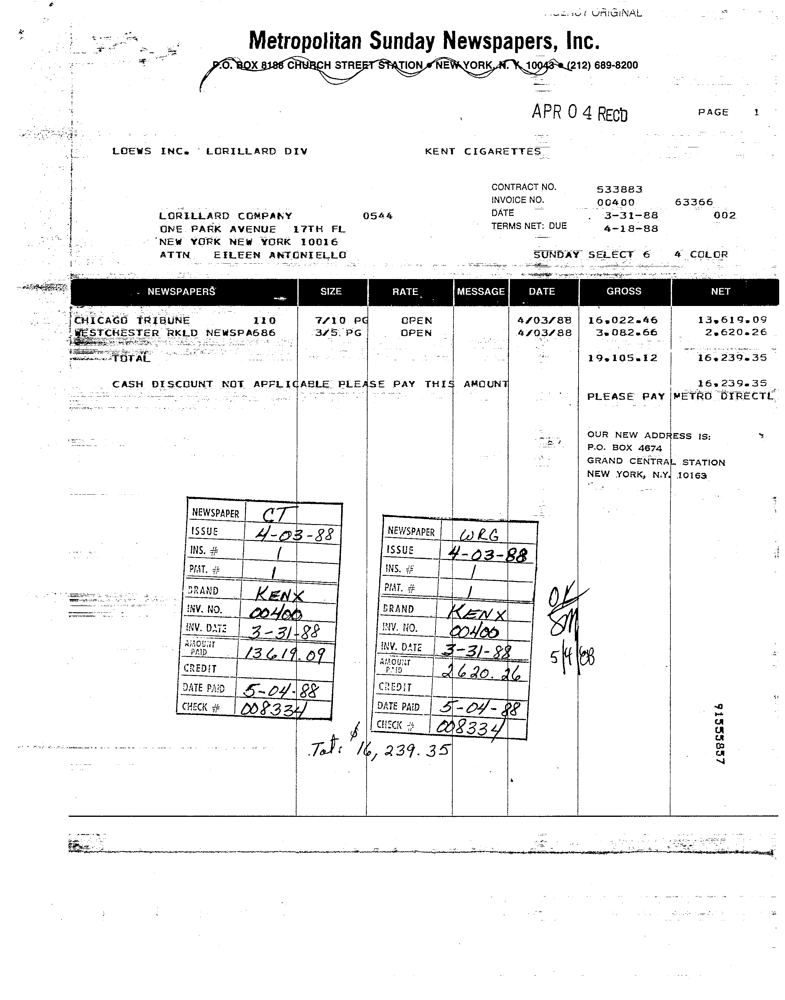 ORIGINAL
Metropolitan Sunday Newspapers, Inc.
P.O. BOX 8188 CHURCH STREET STATION • NEW YORK, N. Y. 10043 • (212) 689-8200
APR 04 REC'D
PAGE 1
LOEWS INC. LORILLARD DIV KENT CIGARETTES
CONTRACT NO. 533883
INVOICE NO. 00400 63366
LORILLARD COMPANY 0544 DATE 3-31-88 002
ONE PARK AVENUE 17TH FL TERMS NET: DUE 4-18-88
NEW YORK NEW YORK 10016
ATTN EILEEN ANTONIELLO SUNDAY SELECT 6 4 COLOR
NEWSPAPERS SIZE RATE MESSAGE DATE GROSS NET
CHICAGO TRIBUNE 110 7/10 PG OPEN 4/03/88 16,022.46 13,619.09
WESTCHESTER RKLD NEWSPA686 3/5 PG OPEN 4/03/88 3,082.66 2,620.26
TOTAL 19,105.12 16,239.35
CASH DISCOUNT NOT APPLICABLE PLEASE PAY THIS AMOUNT 16,239.35
PLEASE PAY METRO DIRECTL
OUR NEW ADDRESS IS:
P.O. BOX 4674
GRAND CENTRAL STATION
NEW YORK, N.Y. 10163
NEWSPAPER CT
ISSUE 4-03-88
INS. # 1
PMT. # 1
BRAND KENX
INV. NO. 00400
INV. DATE 3-31-88
AMOUNT PAID 13619.09
CREDIT
DATE PAID 5-04-88
CHECK # 008334
NEWSPAPER WRG
ISSUE 4-03-88
INS. # 1
PMT. # 1
BRAND KENX
INV. NO. 00400
INV. DATE 3-31-88
AMOUNT PAID 2620.26
CREDIT
DATE PAID 5-04-88
CHECK # 008334
OK
SM
5/4/88
Tot: $16,239.35
91553857